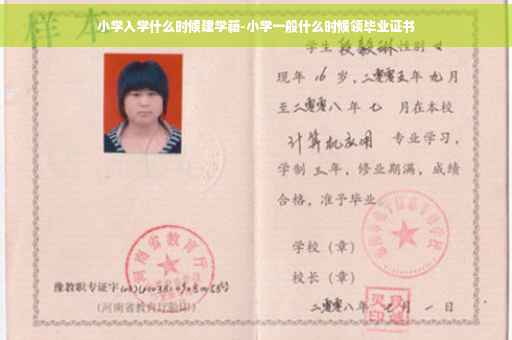 小学入学什么时候建学籍-小学一般什么时候领毕业证书
样本
学生 性别 女
现年 16 岁，二零零五年 九月
至二零零八年 七 月在本校
计算机应用 专业学习，
学制 三年，修业期满，成绩
合格，准予毕业。
学校（章）
校长（章）
二零零八年 七月 一日
河南省教育厅
豫教职专证字
（河南省教育厅验印）